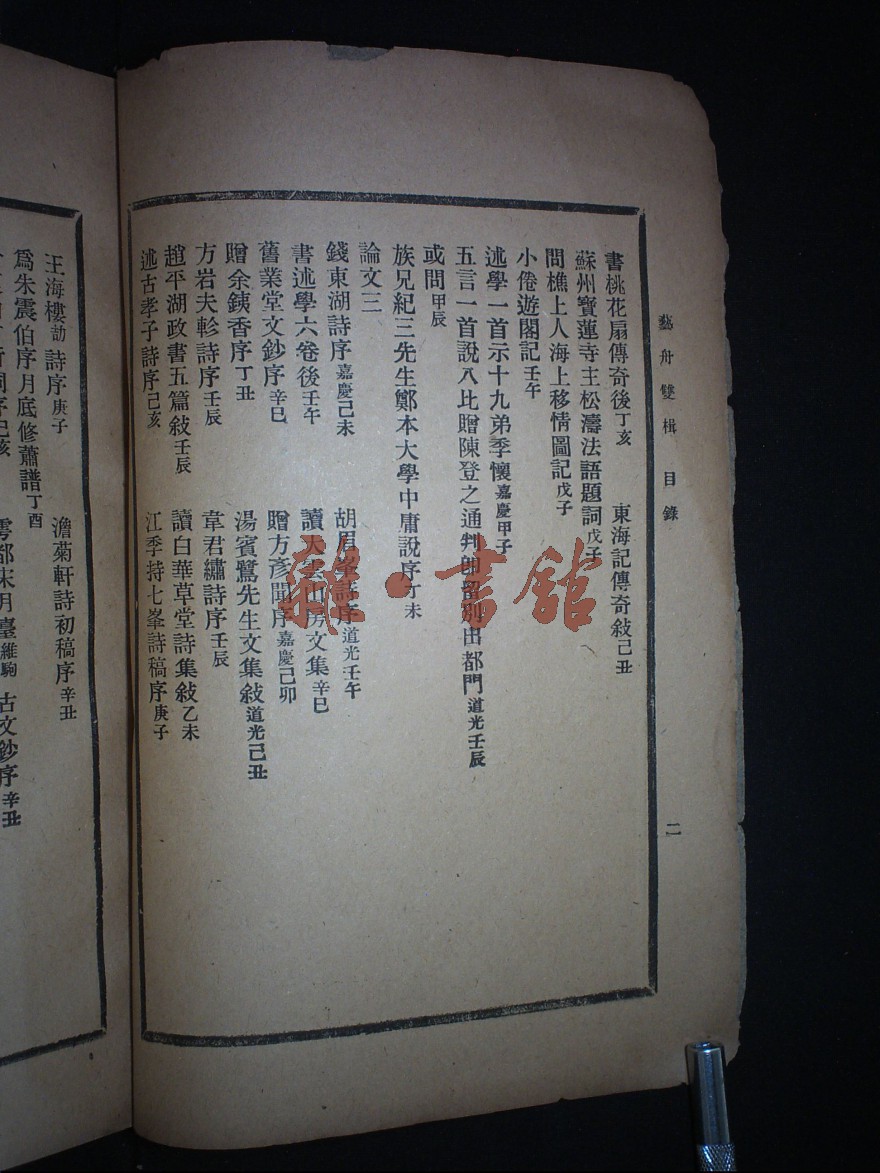 藝舟雙楫　目錄　二
書桃花扇傳奇後丁亥　東海記傳奇敍己丑
蘇州寶蓮寺主松濤法語題詞戊子
問樵上人海上移情圖記戊子
小倦遊閣記壬午
述學一首示十九弟季懷嘉慶甲子
五言一首說八比贈陳登之通判卽留別出都門道光壬辰
或問甲辰
族兄紀三先生鄭本大學中庸說序丁未
論文三
錢東湖詩序嘉慶己未　胡眉峯詩序道光壬午
書述學六卷後壬午　讀大雲山房文集辛巳
舊業堂文鈔序辛巳　贈方彥聞序嘉慶己卯
贈余鐵香序丁丑　湯賓鷺先生文集敍道光己丑
方岩夫軫詩序壬辰　韋君繡詩序壬辰
趙平湖政書五篇敍壬辰　讀白華草堂詩集敍乙未
述古孝子詩序己亥　江季持七峯詩稿序庚子
王海樓劼詩序庚子　澹菊軒詩初稿序辛丑
爲朱震伯序月底修蕭譜丁酉
詞序己亥　雩都宋月臺維駒古文鈔序辛丑
雜·書館